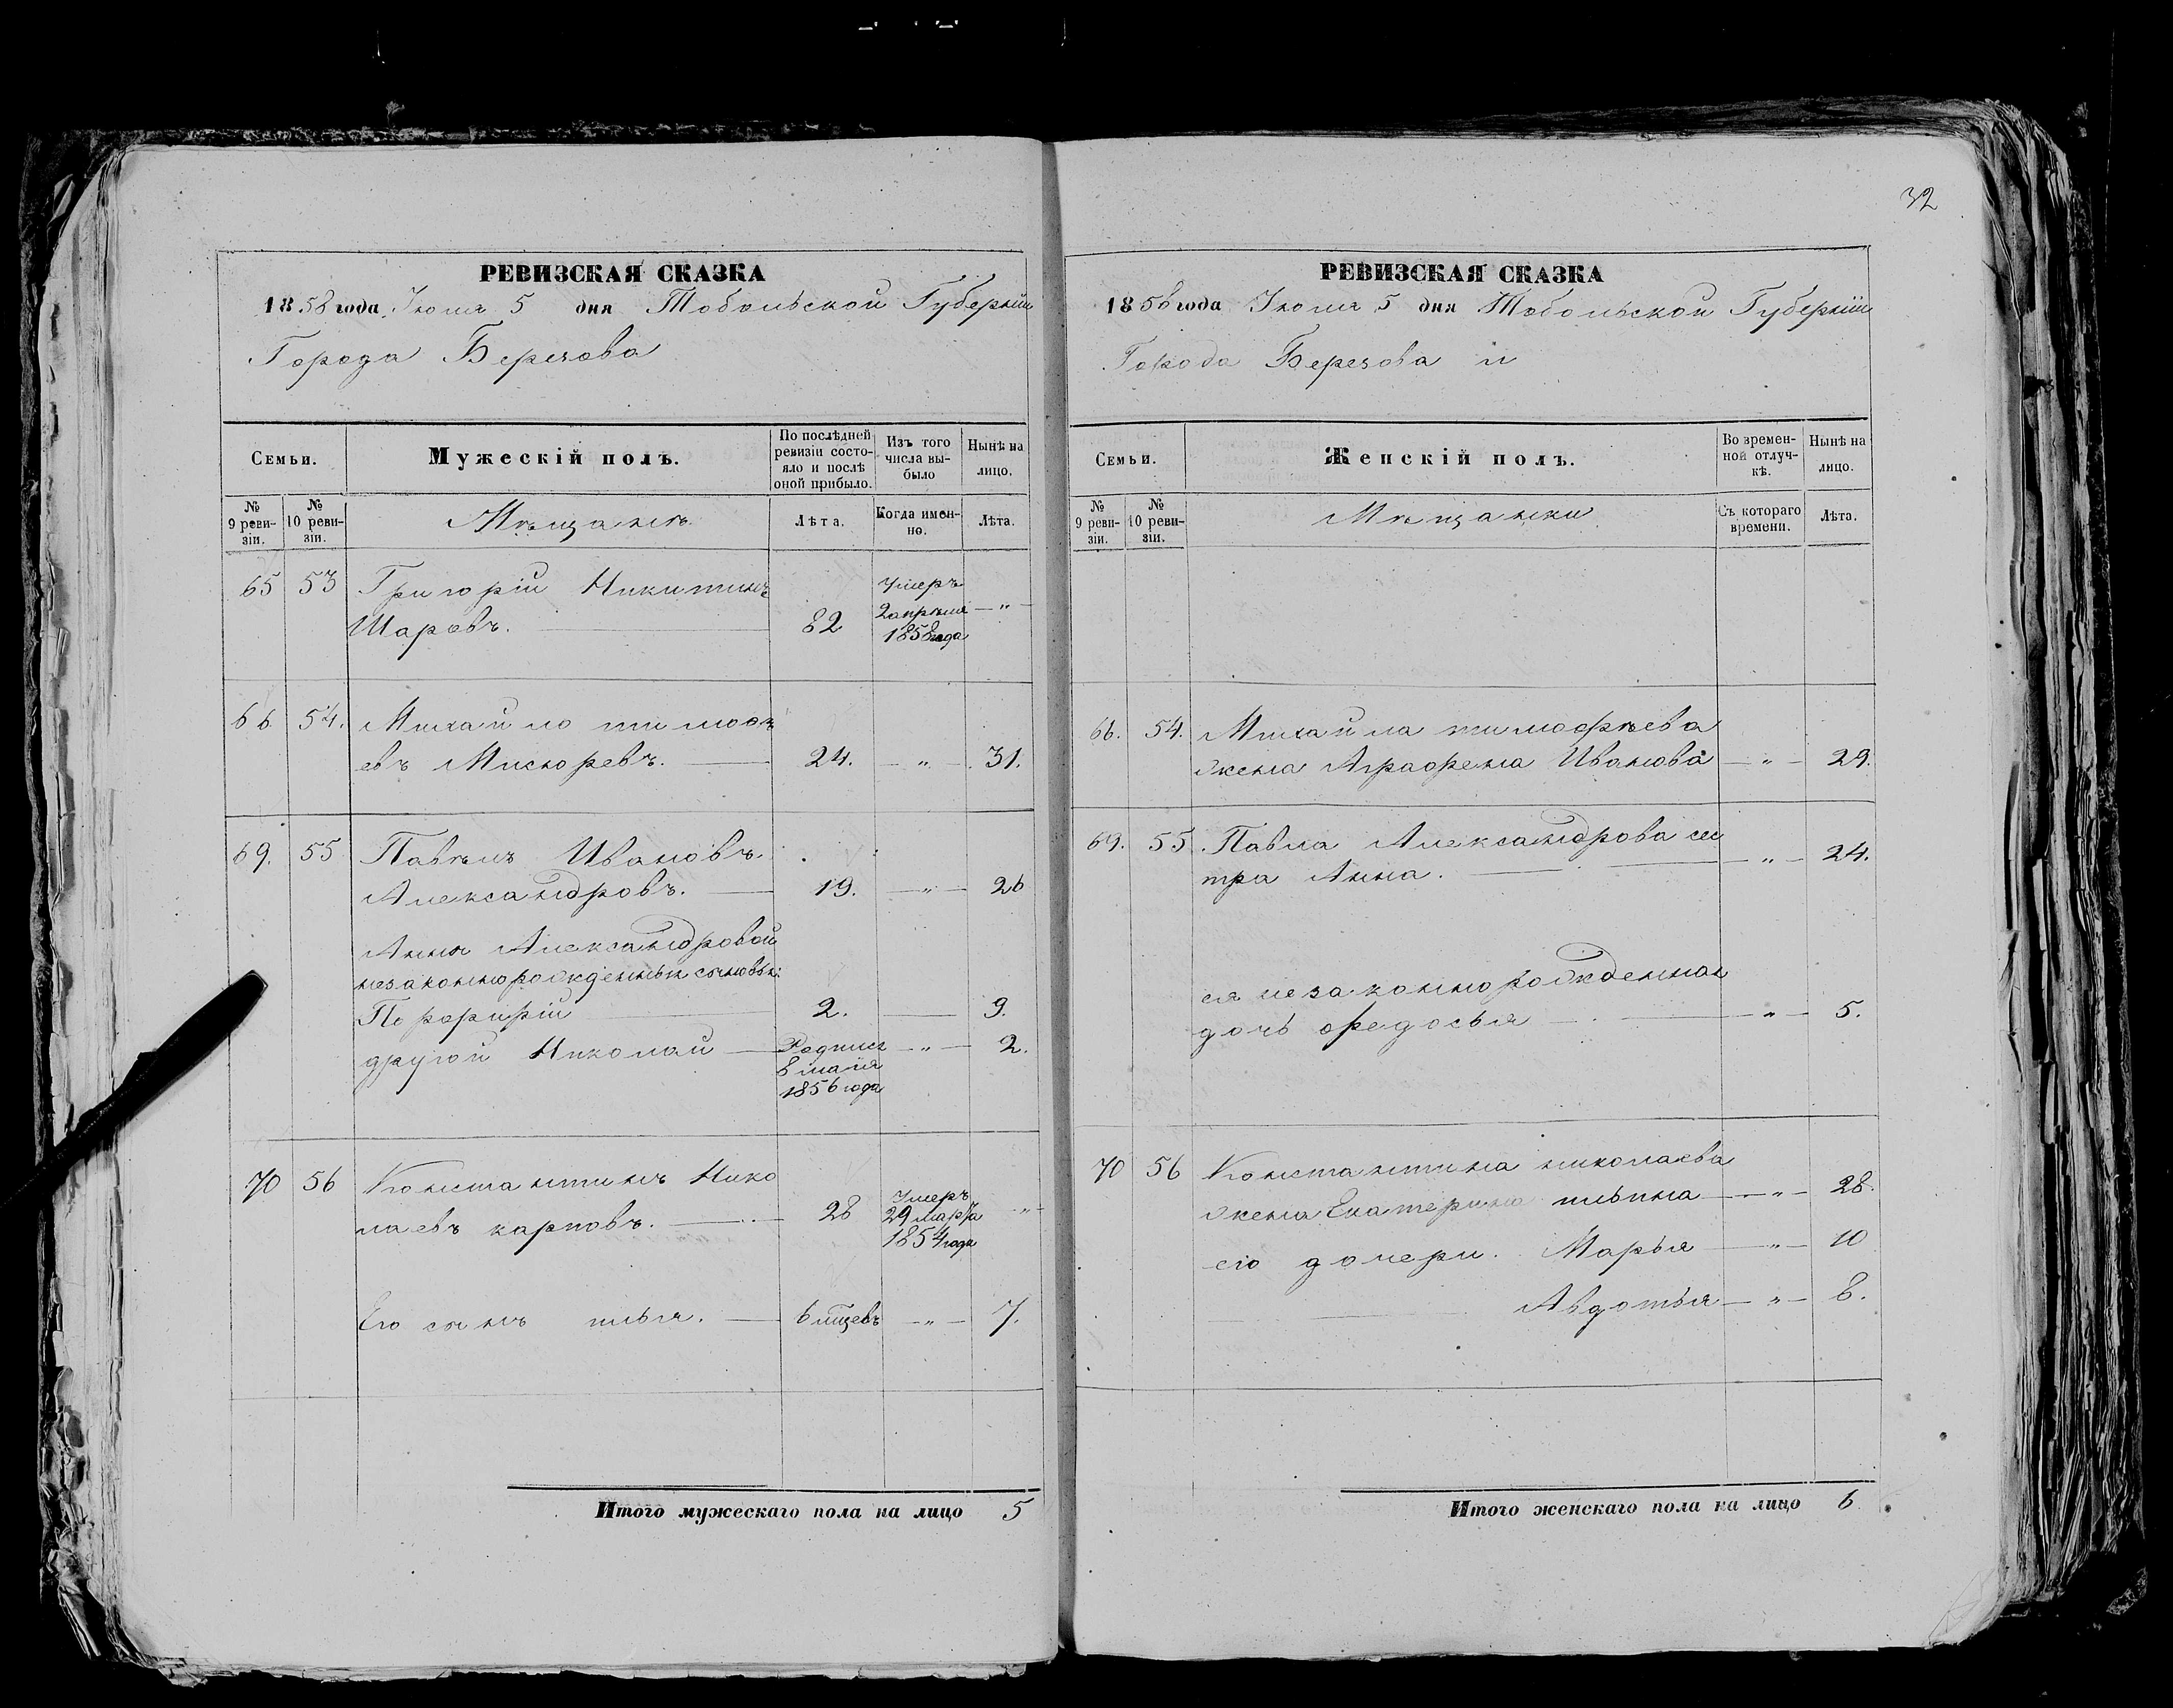 32
РЕВИЗСКАЯ СКАЗКА
1858 года Іюня 5 дня Тобольской Губерніи
Города Березова
Семьи.
Мужескій полъ.
По послѣдней ревизіи состояло и послѣ оной прибыло.
Изъ того числа выбыло
Нынѣ на лицо.
№ 9 ревизіи.
№ 10 ревизіи.
Мѣщане
Лѣта.
Когда именно.
Лѣта.
65 53 Григорій Никитинъ
Шаровъ. 82 Умеръ 2 апрѣля 1858 года — " —
66 54. Михайло тимофѣ
евъ 24. — " — 31.
69. 55 Павелъ Ивановъ
Александровъ. 19. — " — 26
Анны Александровой
незаконнорожденныи сыновья:
Порфирій 2. 9.
другой Николай Родился 8 маія 1856 года — " — 2.
70 56 Константинъ Нико
лаевъ карповъ. 28 Умеръ 29 марта 1854 года "
Его сынъ илья. — " — 7.
Итого мужескаго пола на лицо 5
РЕВИЗСКАЯ СКАЗКА
1858 года Іюня 5 дня Тобольской Губерніи
Города Березова и
Семьи.
Женскій полъ.
Во временной отлучкѣ.
Нынѣ на лицо.
№ 9 ревизіи.
№ 10 ревизіи.
Мѣщанки
Съ котораго времени.
Лѣта.
66. 54. Михайла тимофѣева
жена Аграфена Иванова — " — 29.
69. 55. Павла Александрова сес
тра Анна. — " — 24.
ея незаконнорожденная
дочь федосья — " — 5.
70 56 Константина николаева
жена Екатерина ильина — " — 28.
его дочери. Марья — " — 10
Авдотья — " — 8.
Итого женскаго пола на лицо 6